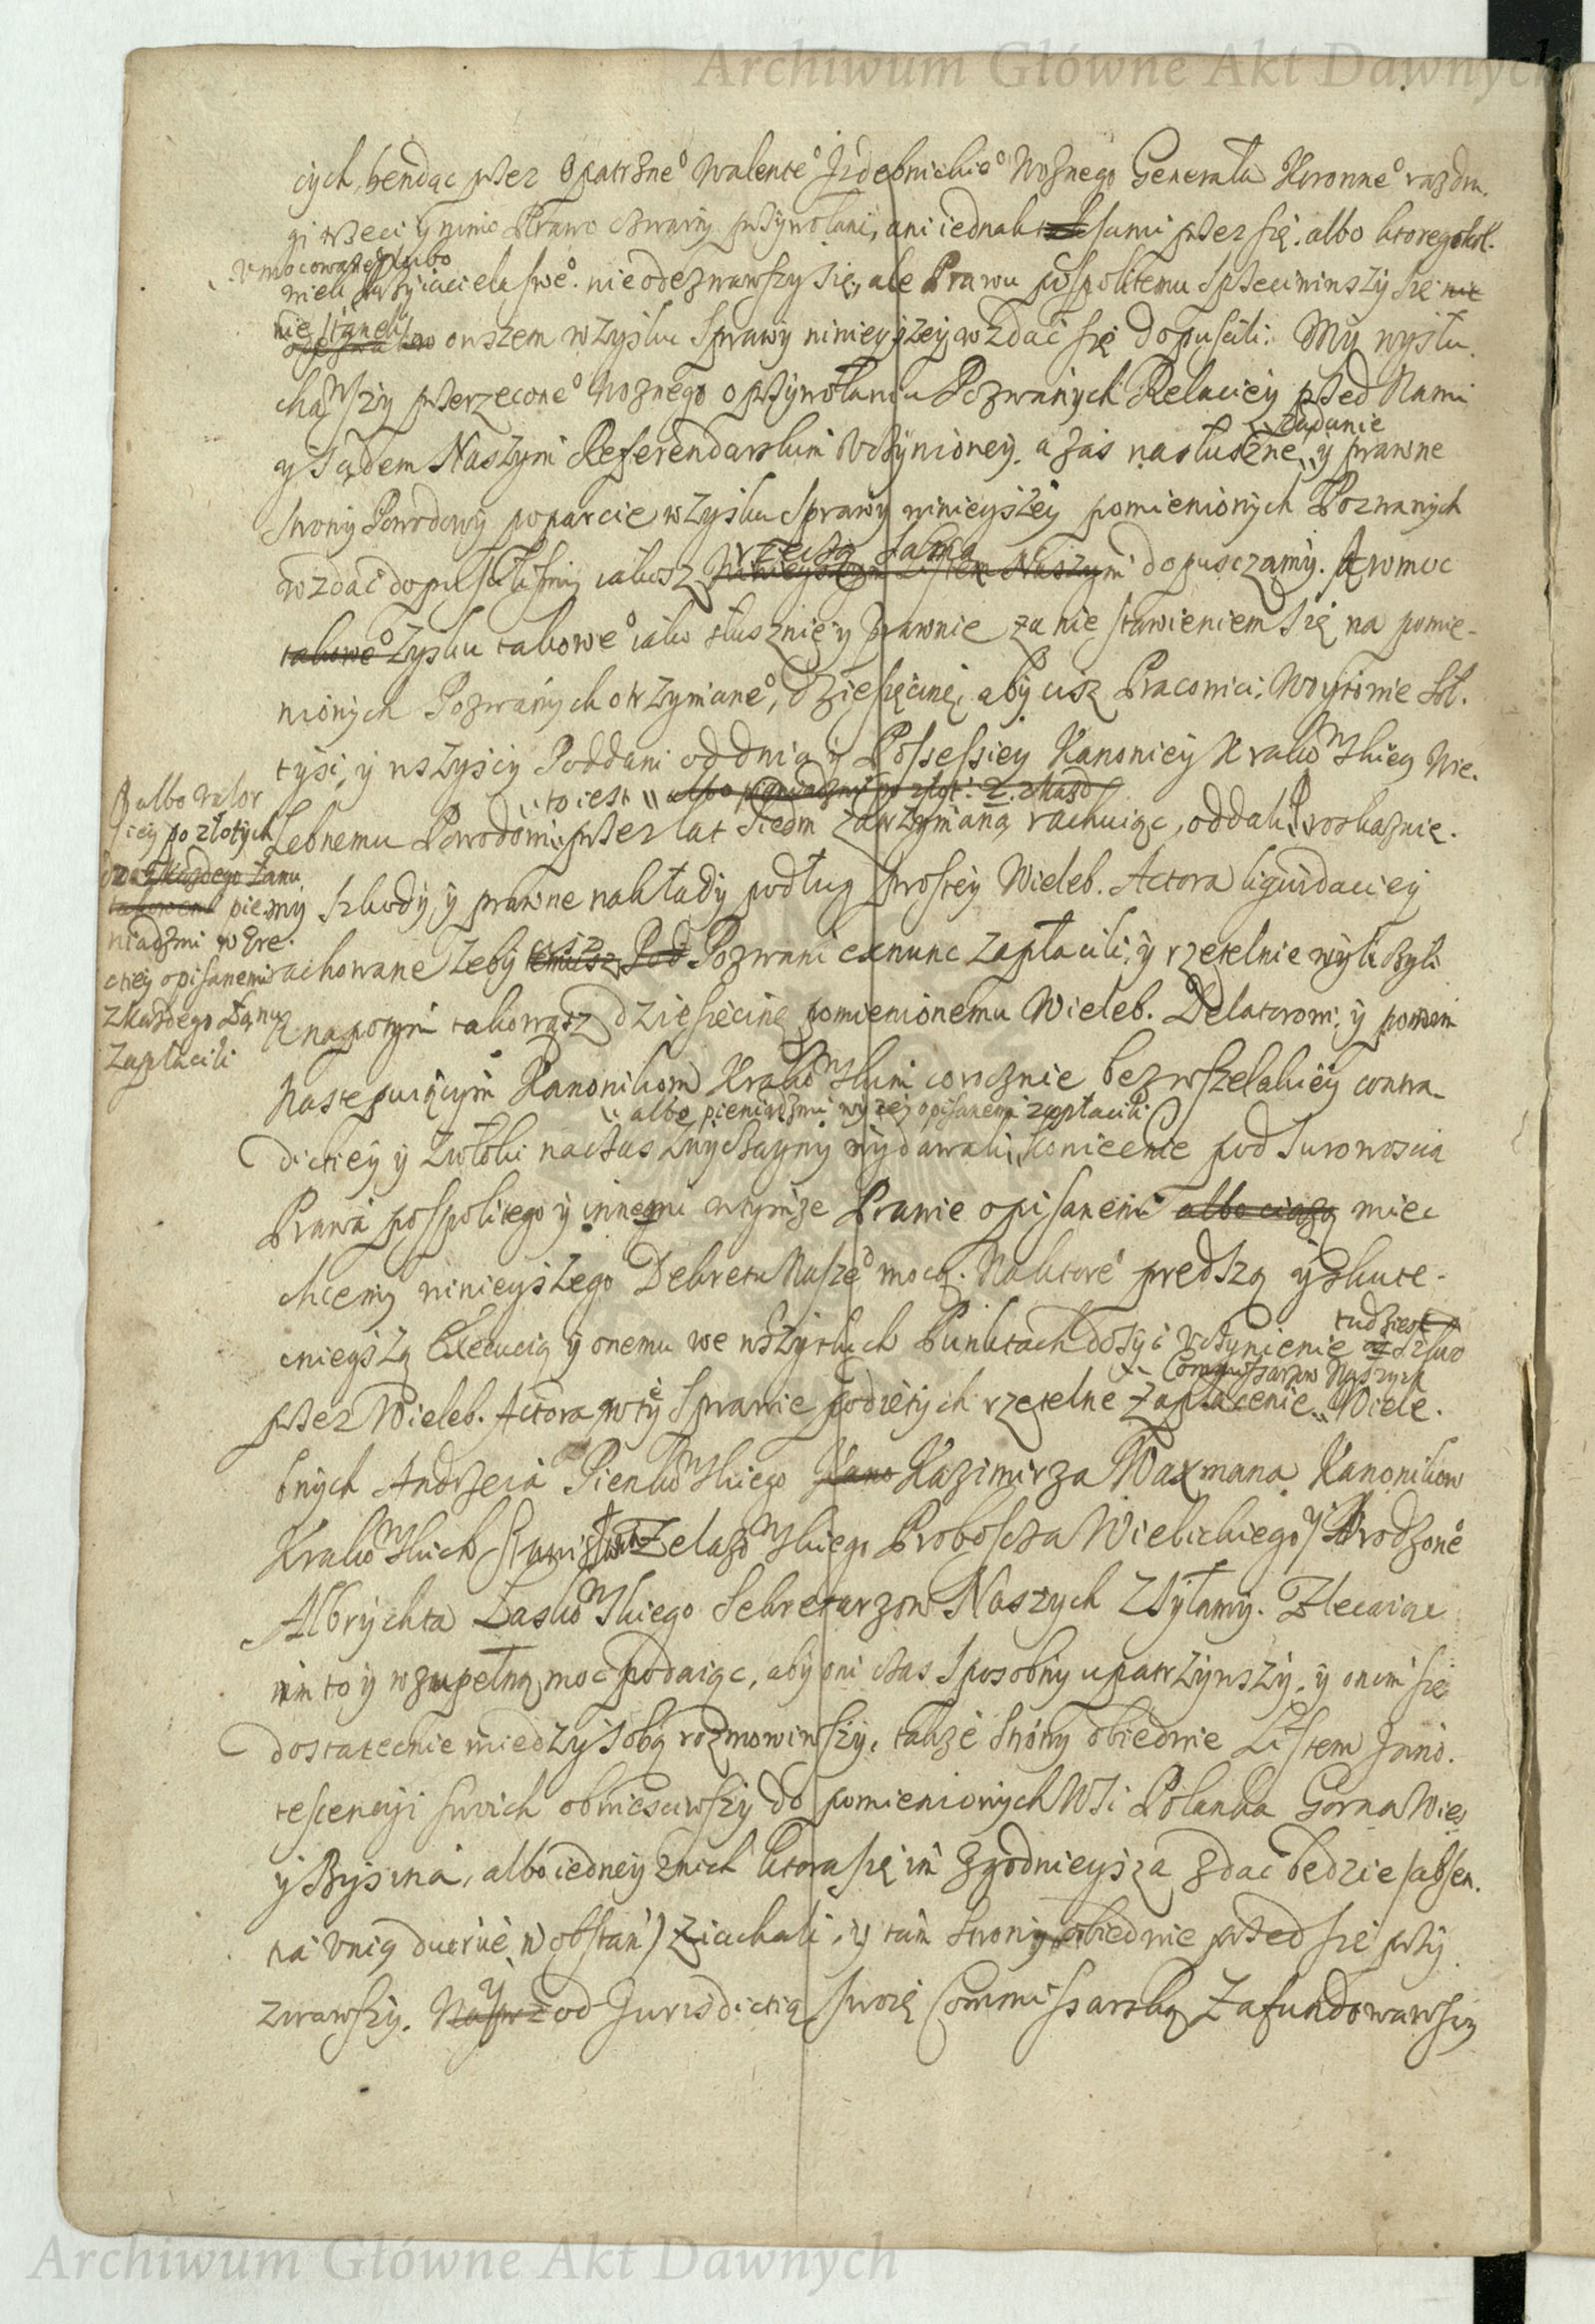 Archiwum Główne Akt Dawnych
cych, bendąc przez Opatrzne° Walente° Izdebnickie° Woznego Generała Koronne° raz dru.
gi trzeci y nimo Prawo czwarty przywołani, ani iednak sami przez się. albo ktoregokol.
Umocowane° lubo
wiek przyiaciela swe°. nieodezwawszy się, ale Prawu pospolitemu sprzeciwiwszy się nie
nie staneli
owszem w zysku Sprawy ninieyszey wzdać się dopuscili: My wysłu.
chawszy przerzecone° Woznego o przywołaniu Pozwanych Relaciey przed Nami
y Sądem Naszym Referendarskim uczynioney. a zas nasłuszne y prawne
żądanie
Strony Powodowy poparcie w zysku Sprawy ninieyszey pomienionych Pozwanych
wzdać dopuscilismy iakosz ninieyszym Listem Naszym dopusczamy. A w moc
rzeczą samą
takowe° Zysku takowe° iako słusznie y prawnie za nie stawieniem się na pomie-
nionych Pozwanych otrzymane°, dziesięcinę, aby cisz Pracowici: Woytowie Soł.
tysi, y wszyscy Poddani od dnia y Possessiey Kanoniey Krakowskiey Wie.
to iest albo pieniądzmi po złot: 2. z kazd
lebnemu Powodowi przez lat siedm zatrzymaną rachuiąc, oddali roskaznie.
albo valor
iey po złotych
dwa z kazdego Łanu
pieniądzmi wzre.
ctiey opisanemi
z kazdego Łanu
zapłacili
my Szkody, y prawne nakłady podług prostey Wieleb. Actora liquidaciey
rachowane zeby cisz Pozwani exnunc zapłacili, y rzetelnie wyliczyli
A napotym takowąsz dziesięcinę pomienionemu Wieleb. Delatorowi, y potem
następuiącym Kanonikom Krakowskim corocznie bez wszelakiey contra-
albo pieniądzmi wyzej opisanemi zapłacili
dictiey y zwłoki na czas zwyczayny wydawali, koniecnie pod surowoscią
Prawa pospolitego y innemi wtymże Prawie opisanemi albo ciążą miec
chcemy ninieyszego Dekretu Nasze° mocą. Na ktore° prędszą y skute-
cnieyszą Execucią y onemu we wszytkich Punktach dosyć uczynienie
tudziesz
przez Wieleb. Actora w tey Sprawie podiętych rzetelne zapłacenie Wiele.
Commissarzow Naszych
bnych Andrzeia Pienkowskiego Kano Kazimirza Waxmana Kanonikow
Krakowskich Stanisława Zelazowskiego Proboscza Wielickiego y Urodzone°
Albrychta Laskowskiego Sekretarzow Naszych Zsyłamy. Zlecaiąc
im to y w zupełną moc podaiąc, aby oni czas sposobny upatrzywszy, y onem się
dostatecnie miedzy sobą rozmowiwszy, także Strony obiedwie Listem Inno.
tescencyi swoich obwiesciwszy do pomienionych Wsi Polanka Gorna Wies
y Bysina, albo iedney z nich ktora się im zgodnieysza zdać bedzie /absen.
tia unią duorūe n obstan) ziachali, y tam Strony obiedwie przed się przy
zwawszy. y Naprzod Jurisdictią swoię Commissarską zafundowawszy
Archiwum Główne Akt Dawnych